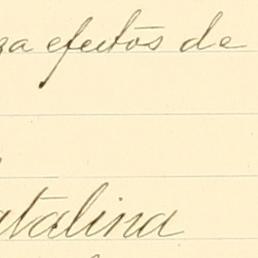 efectos de
atalina